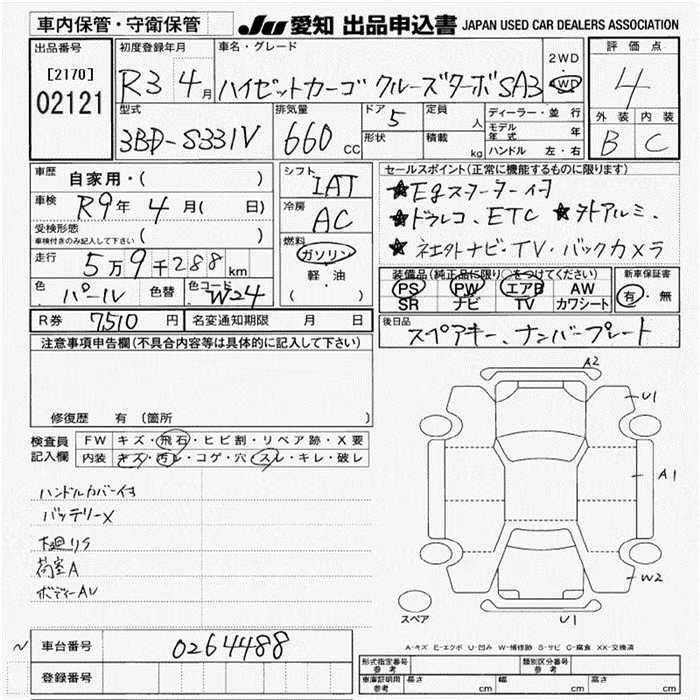 車内保管・守衛保管
JU 愛知 出品申込書 JAPAN USED CAR DEALERS ASSOCIATION
出品番号 初度登録年月 車名・グレード 2WD 評価点
[2170] R3 4月 ハイゼットカーゴ クルーズターボSA3 4WD 4
02121
型式 排気量 ドア 5 定員 人 ディーラー・並行 外装 内装
3BD-S331V 660 CC 形状 積載 kg モデル年式 年 B C
ハンドル 左・右
車歴 自家用・( ) シフト IAT セールスポイント(正常に機能するものに限ります)
車検 R9年 4月( 日) 冷房 AC ★Egスターター付
受検形態 ★ドラレコ、ETC ★外アルミ、
車検付きのみ記入して下さい ( ) 燃料 ★ネエクトナビ・TV・バックカメラ
走行 5万9千288km ガソリン 装備品(純正品に限り○をつけてください) 新車保証書
軽・油 PS PW エアB AW 有・無
色 パール 色替 色コード W24 ( ) SR ナビ TV カワシート
R券 7,510 円 名変通知期限 月 日 後日品 スペアキー、ナンバープレート
注意事項申告欄(不具合内容等は具体的に記入して下さい)
修復歴 有 (箇所
検査員 FW キズ・飛石・ヒビ割・リペア跡・X要
記入欄 内装 キズ・汚レ・コゲ・穴・スレ・キレ・破レ
ハンドルカバー付
バッテリーX
下廻りS
荷室A
ボディーAU
A2
U1
A1
W2
U1
スペア
A-キズ E-エクボ U-凹み W-補修跡 S-サビ C-腐食 XX-交換済
車台番号 0264488
登録番号
形式指定番号 参考 類別区分番号 参考
車庫証明用 参考 長さ cm 幅 cm 高さ cm